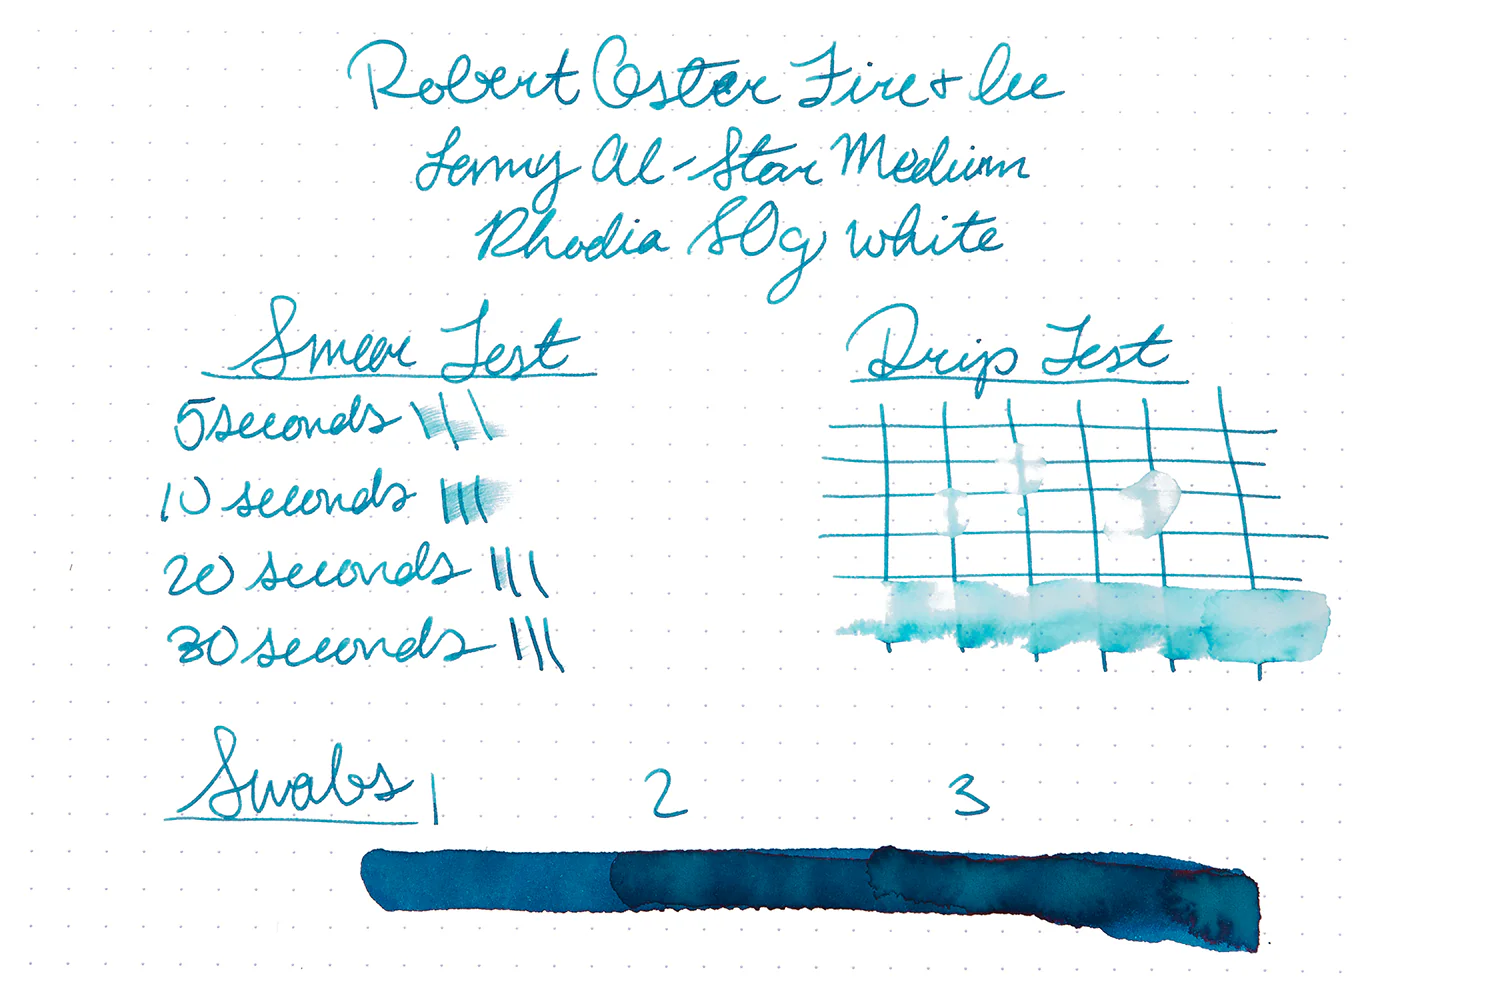 Robert Oster Fire + Ice
Lamy Al-Star Medium
Rhodia 80g white
Smear Test
5 seconds
10 seconds
20 seconds
30 seconds
Drip Test
Swabs 1 2 3